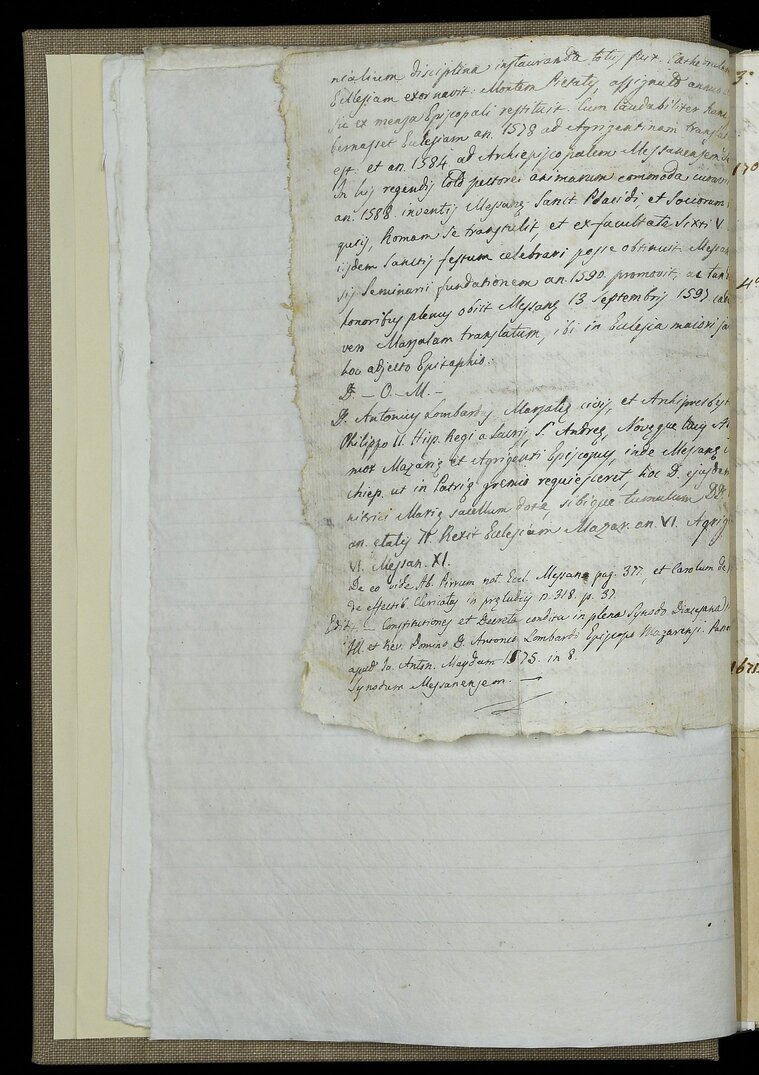 nialium disciplina instauranda totus fuit. Cathedralem
Ecclesiam exornavit: Montem Pietatis, assignato annuo
ex mensa Episcopali restituit. Cum laudabiliter hanc
bernasset Ecclesiam an. 1578 ad Agrigentinam translatus
est, et an. 1584 ad Archiepiscopalem Messanensem
In his regendis toto pectore animarum commoda curavit
an. 1588 inventis Messanę Sanct. Placidi, et Sociorum
quiis, Romam se transtulit, et ex facultate Sixti V
iisdem Sanctis festum celebrari posse obtinuit. Messan
sis Seminarii fundationem an. 1590. promovit, ac tan
honoribus plenus obiit Messanę 13 Septembris 1597.
ver Marsalam translatum, ibi in Ecclesia maiori ja
hoc adjecto Epitaphio.
D. – O. – M. –
D. Antonius Lombardus Marsalę civis, et Archipresbyt
Philippo II. Hisp. Regi a Sacris, S. Andreę,
mox Mazarię et Agrigenti Episcopus, inde Messanę
chiep. ut in Patrię gremio requiesceret, hoc D. ejusdem
nitrici Marię sacellum dotę, sibique tumulum
an. etatis Rexit Ecclesiam Mazar. an. VI. Agrig
VI. Messan. XI.
De eo vide Ab. Pirrum not. Eccl. Messanę pag. 377, et Carolum de
de effectib. Clericatus in pręludiis n. 318. p. 37.
Edit – Constitutiones et Decreta condita in plena Synodo Diocesana
Ill. et Rev. Domino D. Antonio Lombardo Episcopo Mazarensi. Pano
apud Jo. Anton. Maydam 1575. in 8.
Synodum Messanensem. –
3°
170
4°
1671